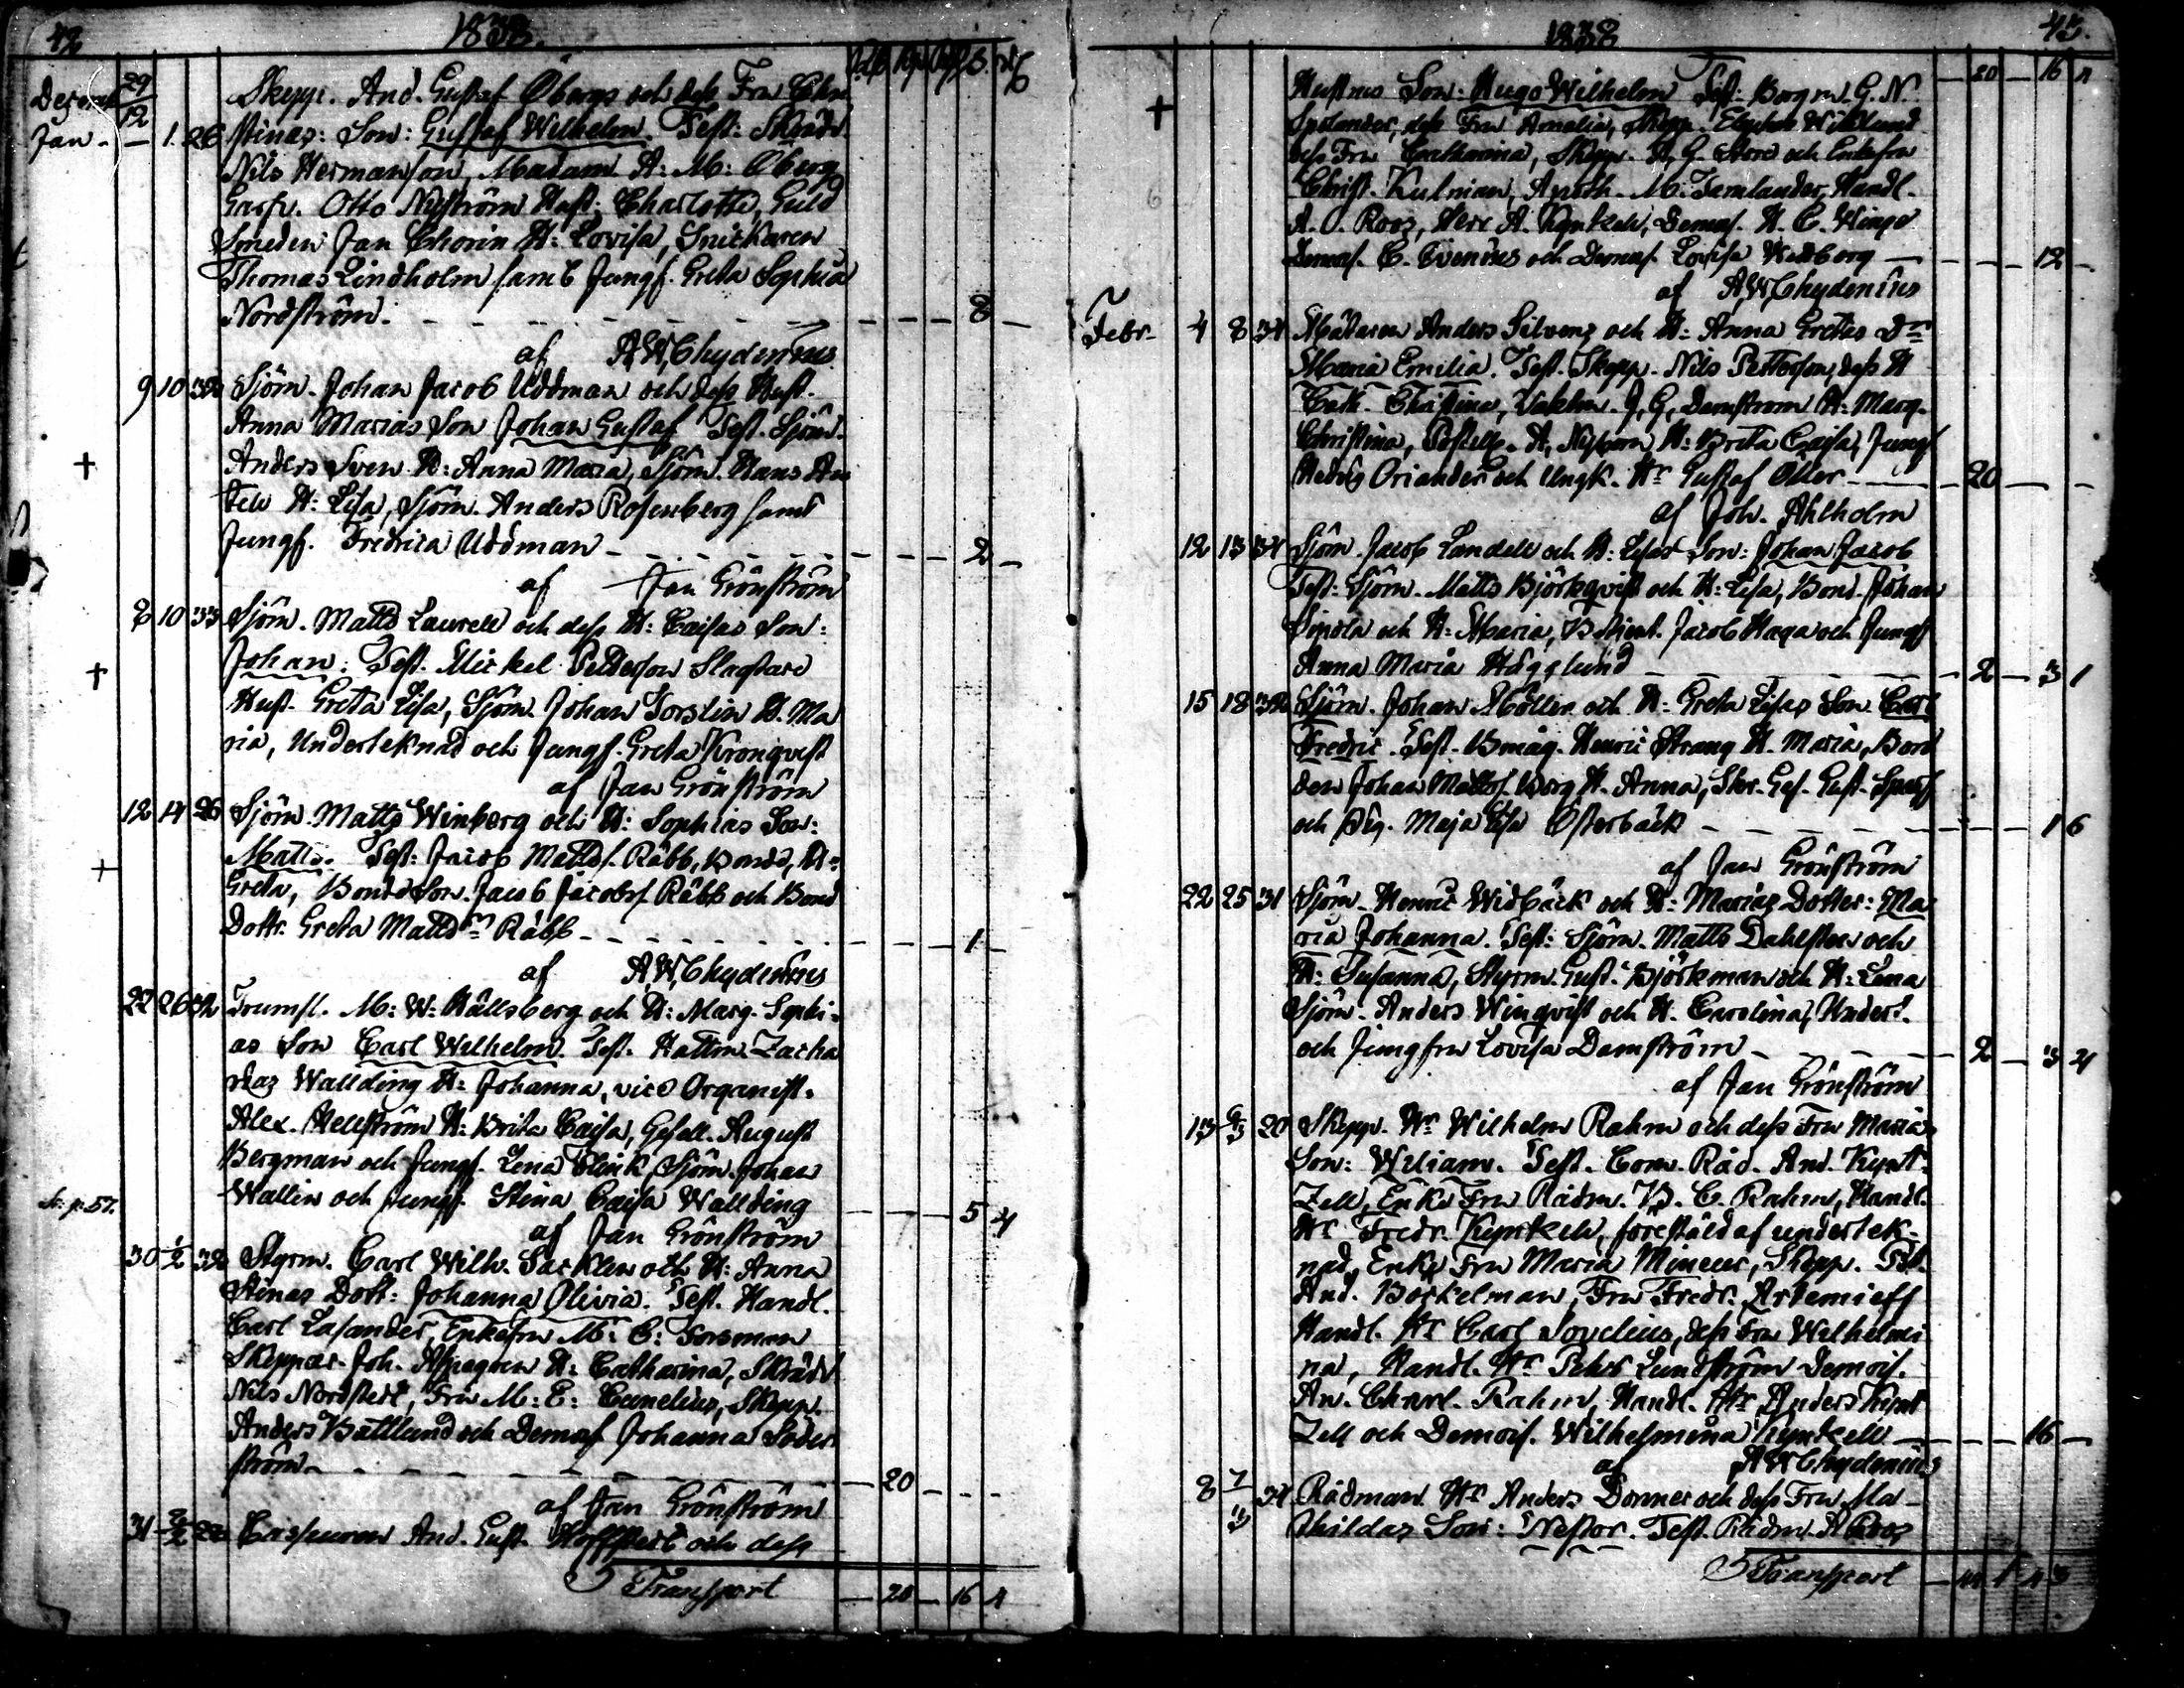 42 1838.
Decemb 29/12 Skepp. And. Gustaf Öbergs och dess Fru Chri
Jan. – 1. 26 stinas: Son: Gustaf Wilhelm. Test: Skrädd.
Nils Hermanson, Madam A: M: Öberg
Garfv. Otto Nyström Hust: Charlotta, Guld
Smeden Jan Thorin H: Lovisa, Snickaren
Thomas Lindholm samt Jungf. Greta Sophia
Nordström. – – – 8 –
af AWChydenius
9 10 32 Sjöm. Johan Jacob Uddman och dess Hust.
Anna Marias Son Johan Gustaf Test. Sjöm.
Anders Sven H: Anna Maria, Sjöm. Hans An
H: Lisa, Sjöm. Anders Rosenberg samt
Jungf. Fredrica Uddman – – – 2 –
af Jan Grönström
8 10 33 Sjöm. Matts Laurell och dess H: Caisas Son:
Johan. Test. Mickel Pettersson Slagtare
Hust. Greta Lisa, Sjöm. Johan Torslin H. Ma
ria, Underteknad och Jungf. Greta Kronqvist
af Jan Grönström
12 14 26 Sjöm. Matts Winberg och H: Sophias Son:
Matts. Test: Jacob Mattss. Räbb, Bonde, H:
Greta, Bonde Son. Jacob Jacobss. Räbb och Bond
Dottr. Greta Mattsdr Räbb – – – 1 –
af AWChydenius
22 26 Trumsl. M: W: Hällsberg och H: Marg. Sophi-
as Son Carl Wilhelm. Test. Hattm. Zacha
rias Wallding H: Johanna, vice Organist.
Alex. Hellström H: Brita Caisa, Gesäll. August
Bergman och Jungf. Lena Flink, Sjöm. Johan
Se p. 57. Wallin och Jungf. Stina Caisa Wallding – – – 5 4
af Jan Grönström
30 1/2 32 Styrm. Carl Wilh. Sacklen och H: Anna
Stinas Dott: Johanna Olivia. Test. Handl.
Carl Lasander, Enkefru M: C: Forsman
Skeppar. Joh. H: Catharina, Skrädd
Nils Nordstedt, Fru M: E: Cunelius, Skepp.
Anders Battlund och Demois Johanna Söder
ström – – – 20 – – –
af Jan Grönström
31 2/2 22 And. Gust. och dess
Transport – 20 – 16 4
1838 43.
– 20 – 16 4
Hustrus Son: Hugo Wilhelm Test: Borgm. G. N.
dess Fru Amelia, Skepp. Wiklund
dess Fru Catharina, Skepp. A. G. och Enkefru
Christ. Kulman, Apoth. M. Tamlander, Handl.
A. O. Roos, Herr A. Kyntzell, Demois. H. C. Winge
Demois. C. och Demois. Lovisa Wedborg – – – 12 –
af AWChydenius
Febr. 4 8 34 Målaren Anders Silvens och H: Anna Gretas Dr
Maria Emilia. Test. Skepp. Nils Petterson, dess H
Cath. Christina, J. G. Damstrom H: Marg.
Christina, A. Nystrom H: Brita Caisa, Jungf
Hedvig Oriander och Ungk. Hr Gustaf Öller – – – 20 – – –
af Joh. Ahlholm
12 13 34 Sjöm. Jacob Landell och H: Lisas Son: Johan Jacob
Test: Sjöm. Matts Björkqvist och H: Lisa, Bond. Johan
Sipola och H: Maria, Jacob Haga och Jungf
Anna Maria Hägglund – – – 2 – 3 1
15 18 32 Sjöm. Johan Möller och H: Greta Lisas Son Carl
Fredric. Test. Henric Strang H. Maria, Bond
den Johan Mattss. Borg H. Anna, Skr. Ges. Gust.
och Pig. Maja Lisa Österbäck – – – 1 6
af Jan Grönström
22 25 31 Sjöm. Henric Widbäck och H: Marias Dotter: Ma
ria Johanna. Test: Sjöm. Matts Dahlsten och
H: Susanna, Styrm. Gust. Björkman och H: Lena
Sjöm. Anders Winqvist och H. Carolina, Undert.
och Jungfru Lovisa Damström – – – 2 – 3 4
af Jan Grönström
13 20 Skepp. Hr Wilhelm Rahm och dess Fru Marias
Son: William. Test. Com. Råd. And. Kynt-
zell, Enke Fru Rådm. B. C. Rahm, Handl.
Hr Fredr. Kyntzell, föreståld af undertek-
nad, Enke Fru Maria Mineur, Skepp.
And. Borkelman, Fru Fredr. Artemieff
Handl. Hr Carl Sovelius, dess Fru Wilhelmi
na, Handl. Hr Pehr Lundström Demois.
An. Charl. Rahm, Handl. Hr Anders Kynt
zell och Demois. Wilhelmina Kyntzell – – – 16 –
af AWChydenius
8 7/3 34 Rådman. Hr Anders Donner och dess Fru Ma-
thildas Son: Nestor. Test. Rådm. A Roos
Transport